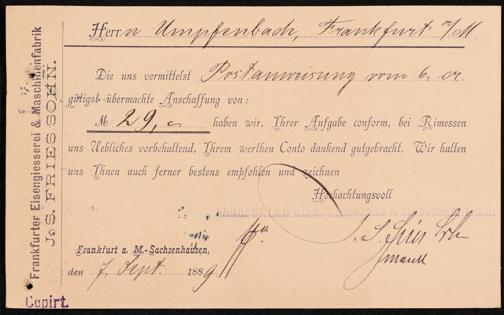 Frankfurter Eisengiesserei & Maschinenfabrik
J. S. FRIES SOHN.
Herrn Umpfenbach, Frankfurt a/M.
Die uns vermittelst Postanweisung vom 6. cr.
gütigst übermachte Anschaffung von:
M 29,
haben wir, Ihrer Aufgabe conform, bei Rimessen
uns Uebliches vorbehaltend, Ihrem werthen Conto dankend gutgebracht. Wir halten
uns Ihnen auch ferner bestens empfohlen und zeichnen
Hochachtungsvoll
Frankfurt a. M.-Sachsenhausen,
den 7. Sept. 1889.
J. S. Fries Sohn
Copirt.